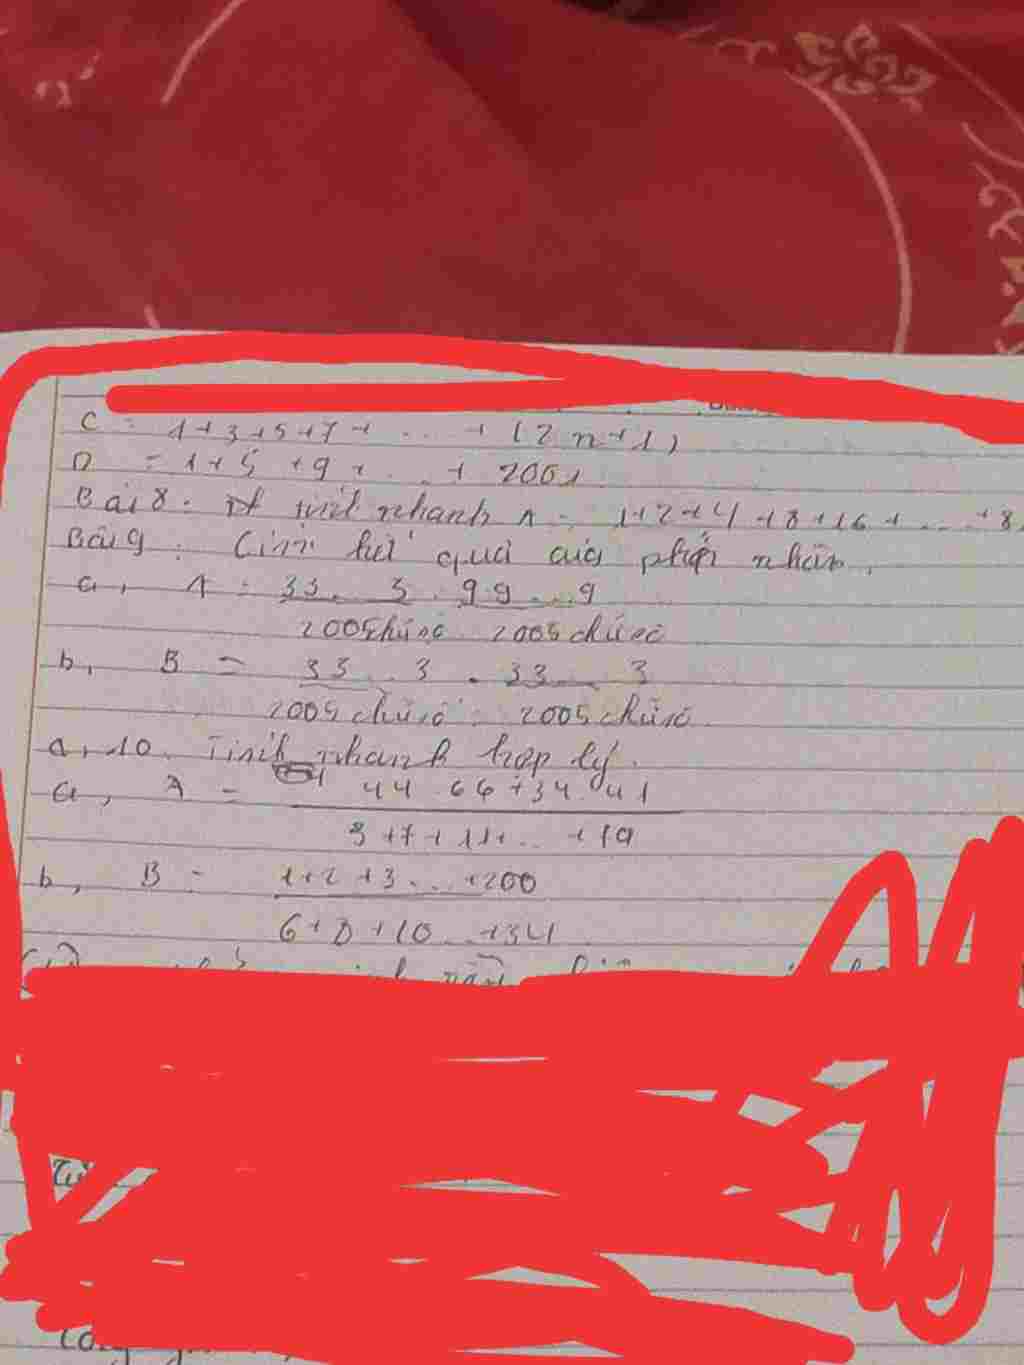 C = 1+3+5+7+ ... + (2n+1)
D = 1+5+9+ ... + 2001
Bài 8: tính nhanh A = 1+2+4+8+16+ ... +8
Bài 9: kết quả của phép nhân.
a, A = 33...3 . 99...9
2005 chữ số 2005 chữ số
b, B = 33...3 . 33...3
2005 chữ số 2005 chữ số
10. Tính nhanh hợp lý.
a, A = 44 66 + 34 41
3+7+11+...+19
b, B = 1+2+3...+200
6+8+10...+34